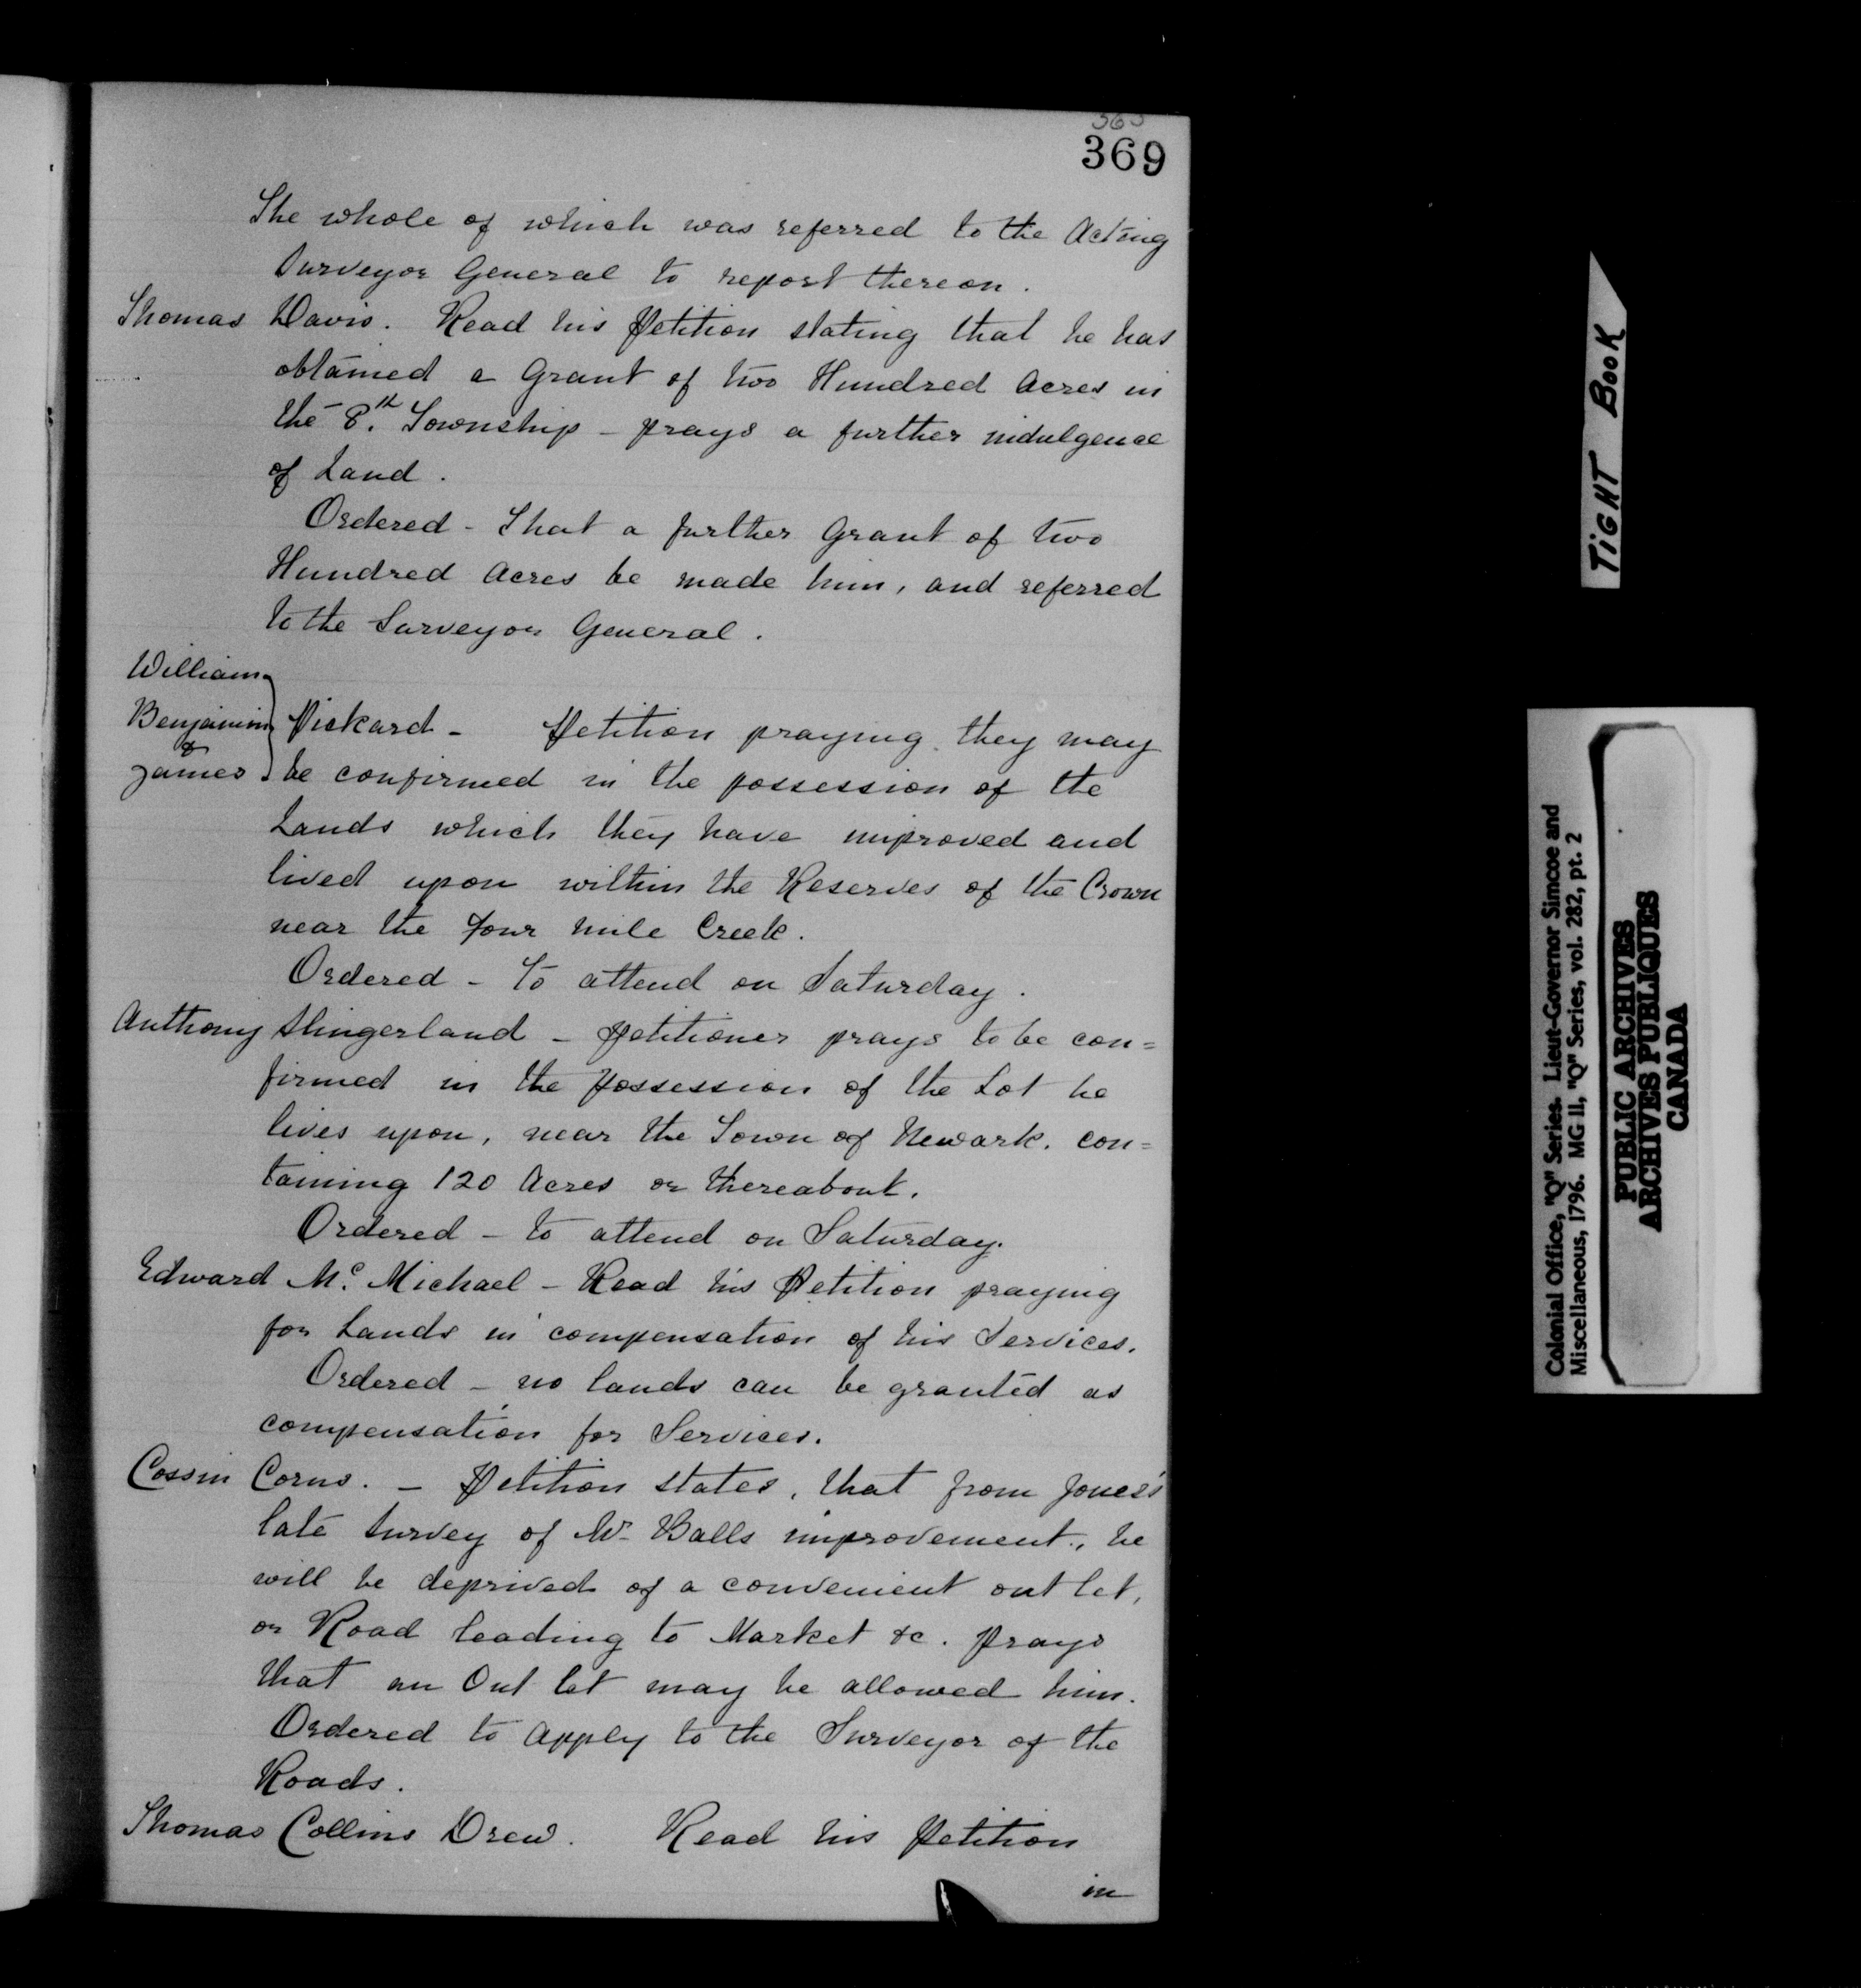 369
The whole of which was referred to the Acting
Surveyor General to report thereon.
Thomas Davis. Read his Petition stating that he has
obtained a Grant of two Hundred Acres in
the 8th. Township - prays a further indulgence
of Land.
Ordered - That a further Grant of two
Hundred Acres be made him, and referred
to the Surveyor General.
William
Benjamin Pickard - Petition praying they may
&
James be confirmed in the possession of the
Lands which they have improved and
lived upon within the Reserves of the Crown
near the Four Mile Creek.
Ordered - To attend on Saturday.
Anthony Slingerland - Petitioner prays to be con=
firmed in the Possession of the Lot he
lives upon, near the Town of Newark, con=
taining 120 Acres or thereabout.
Ordered - to attend on Saturday.
Edward Mc. Michael - Read his Petition praying
for Lands in compensation of his Services.
Ordered - no lands can be granted as
compensation for Services.
Cossin Corus. - Petition states, that from Jones's
late Survey of Mr Balls improvement, he
will be deprived of a convenient out let,
or Road leading to Market &c. prays
that an Out let may be allowed him.
Ordered to apply to the Surveyor of the
Roads.
Thomas Collins Drew. Read his Petition
in
TIGHT BOOK
Colonial Office, "Q" Series. Lieut-Governor Simcoe and
Miscellaneous, 1796. MG 11, "Q" Series, vol. 282, pt. 2
PUBLIC ARCHIVES
ARCHIVES PUBLIQUES
CANADA